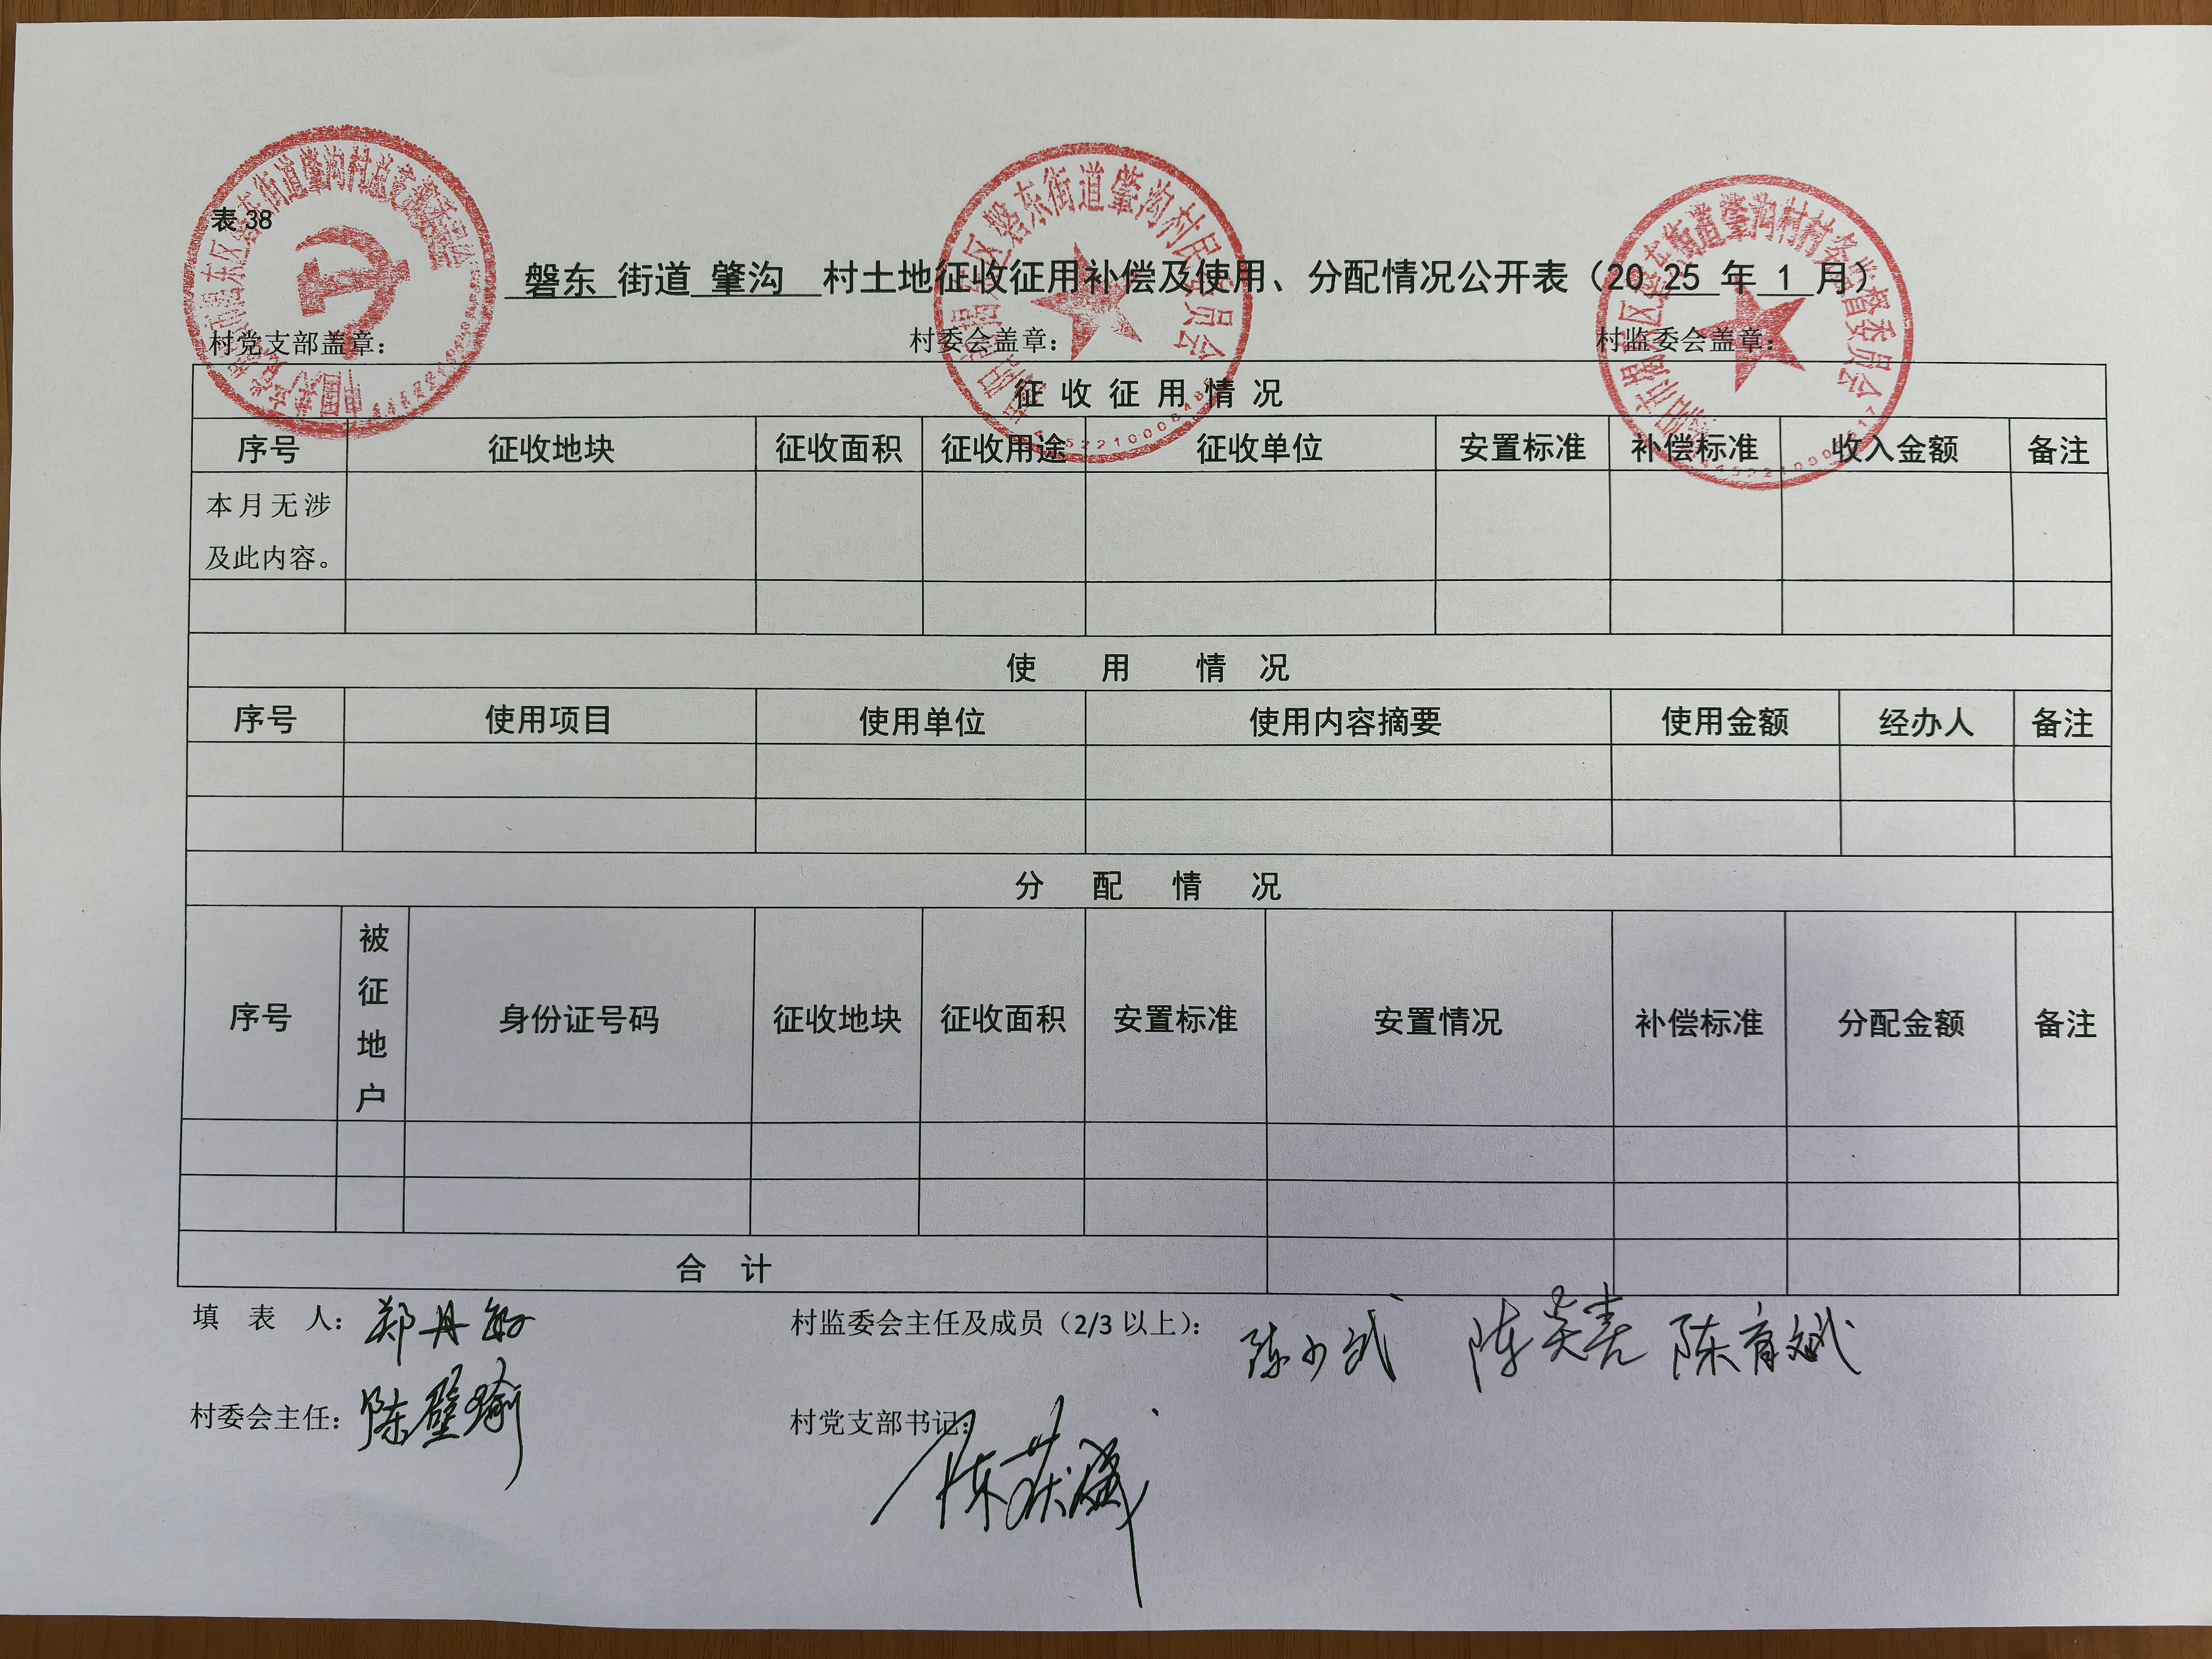 表 38
磐东 街道 肇沟 村土地征收征用补偿及使用、分配情况公开表（20 25 年 1 月）
村党支部盖章： 村委会盖章： 村监委会盖章：
征 收 征 用 情 况
序号 征收地块 征收面积 征收用途 征收单位 安置标准 补偿标准 收入金额 备注
本月无涉
及此内容。
使 用 情 况
序号 使用项目 使用单位 使用内容摘要 使用金额 经办人 备注
分 配 情 况
序号 被征地户 身份证号码 征收地块 征收面积 安置标准 安置情况 补偿标准 分配金额 备注
合 计
填 表 人： 郑丹敏 村监委会主任及成员（2/3 以上）： 陈少武 陈育斌
村委会主任： 陈壁瑜 村党支部书记：
磐东街道肇沟村民委员会
街道肇沟村村务监督委员会